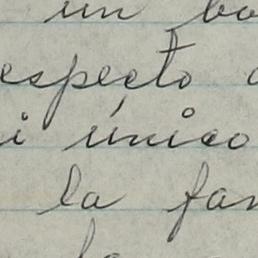 un bo
especto
i único
la fam